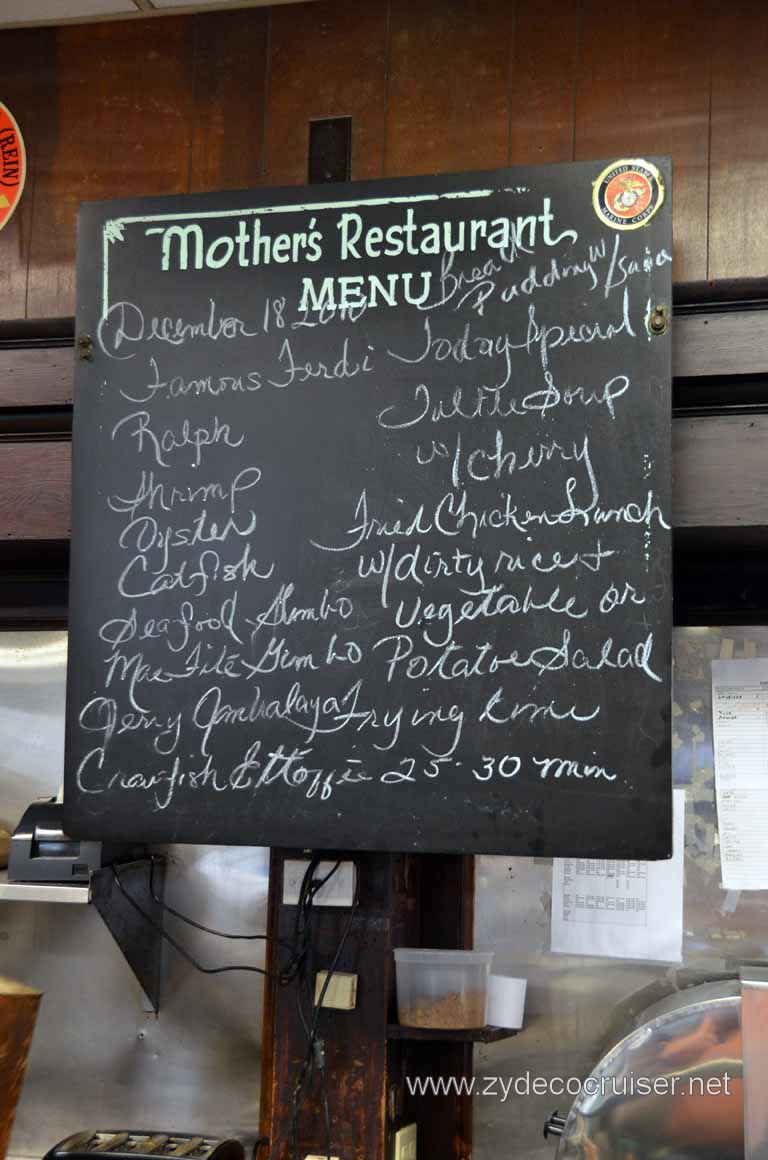 (REIN)
UNITED STATES
MARINE CORPS
Mother's Restaurant
MENU
Bread
Pudding w/
December 18 2010
Famous Ferdi
Ralph
Shrimp
Oyster
Catfish
Seafood Gumbo
Mae Filé Gumbo
Jerry Jambalaya
Crawfish Ettoffée
Today Special
Tultle Soup
w/cherry
Fried Chicken Lunch
w/dirty rice +
Vegetable or
Potatoe Salad
Frying time
25-30 min
www.zydecocruiser.net